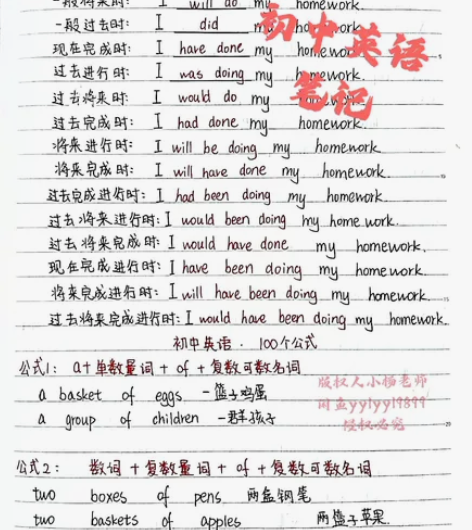 一般将来时: I will do my homework.
一般过去时: I did my homework.
现在完成时: I have done my homework.
过去进行时: I was doing my homework.
过去将来时: I would do my homework.
过去完成时: I had done my homework.
将来进行时: I will be doing my homework.
将来完成时: I will have done my homework.
过去完成进行时: I had been doing my homework.
过去将来进行时: I would been doing my home work.
过去将来完成时: I would have done my homework.
现在完成进行时: I have been doing my homework.
将来完成进行时: I will have been doing my homework.
过去将来完成进行时: I would have been doing my homework.
初中英语
笔记
初中英语 · 100个公式
公式1: a+单数量词 + of + 复数可数名词
a basket of eggs 一篮子鸡蛋
a group of children 一群孩子
版权人小杨老师
闲鱼yylyyl9899
侵权必究
公式2: 数词 + 复数量词 + of + 复数可数名词
two boxes of pens 两盒钢笔
two baskets of apples 两篮子苹果